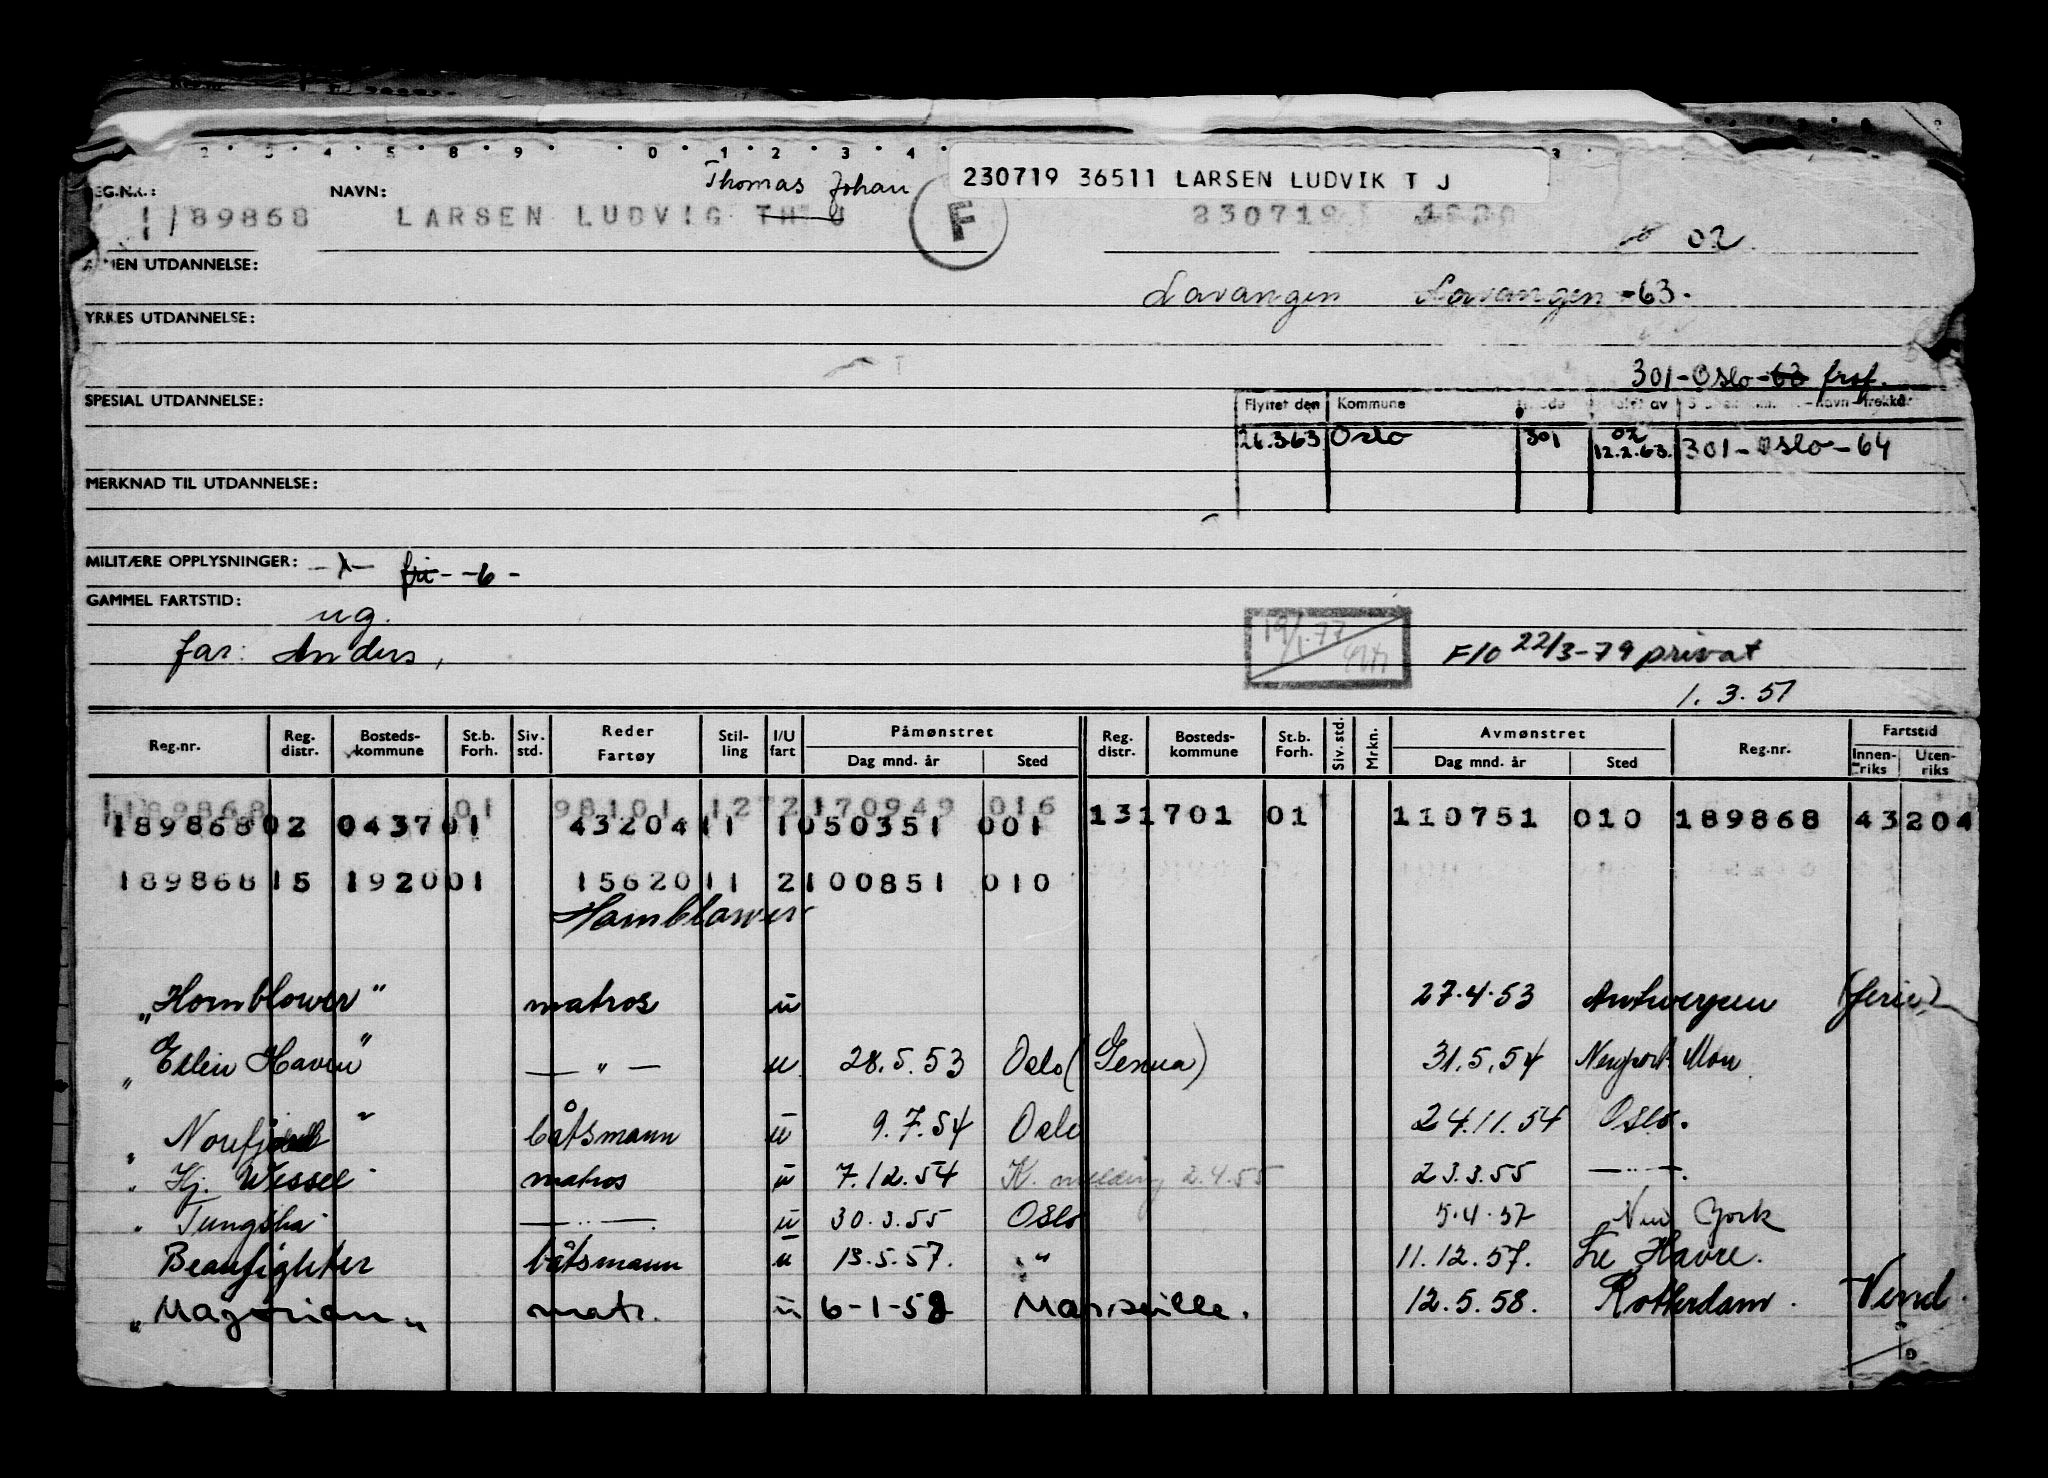 2 3 4 5 8 9 0 1 2 3 4
Thomas Johan
230719 36511 LARSEN LUDVIK T J
EG.NR.: NAVN:
189868 LARSEN LUDVIG TH J F 230719
02
MEN UTDANNELSE:
Lavangen Lavangen -63.
YRKES UTDANNELSE:
301-Oslo-63
SPESIAL UTDANNELSE:
Flyttet den Kommune
26.3.63 Oslo 301 02 12.2.63. 301-Oslo-64
MERKNAD TIL UTDANNELSE:
MILITÆRE OPPLYSNINGER: fri - -6-
GAMMEL FARTSTID:
ug.
far: Anders,
F/O 22/3-79 privat
1.3.51
Reg.nr. Reg. distr. Bosteds-kommune St.b. Forh. Siv. std. Reder Fartøy Stil-ling I/U fart Påmønstret Dag mnd. år Sted Reg. distr. Bosteds-kommune St.b. Forh. Siv. std. Mrkn. Avmønstret Dag mnd. år Sted Reg.nr. Fartstid Innen-riks Uten-riks
189868 01 98101 12 2 170949 016
189868 02 0437 01 43204 11 1 050351 001 13 1701 01 110751 010 189868 43204
189868 15 1920 01 15620 11 2 100851 010
Hornblower
„Hornblower" matros u 27.4.53 Antwerpen (ferie)
„Ellin Haven" — " — u 28.5.53 Oslo (Genua) 31.5.54 Newport Mon
„Norefjord" båtsmann u 9.7.54 Oslo 24.11.54 Oslo.
" Hj. Wessel matros u 7.12.54 K. melding 2.4.55 23.3.55 — " —.
" Tungsha — " —. u 30.3.55 Oslo 5.4.57 New York
Beaufighter båtsmann u 13.5.57. " 11.12.57. Le Havre.
„Majorian„ matr. u 6-1-58 Marseille. 12.5.58. Rotterdam. Vend.